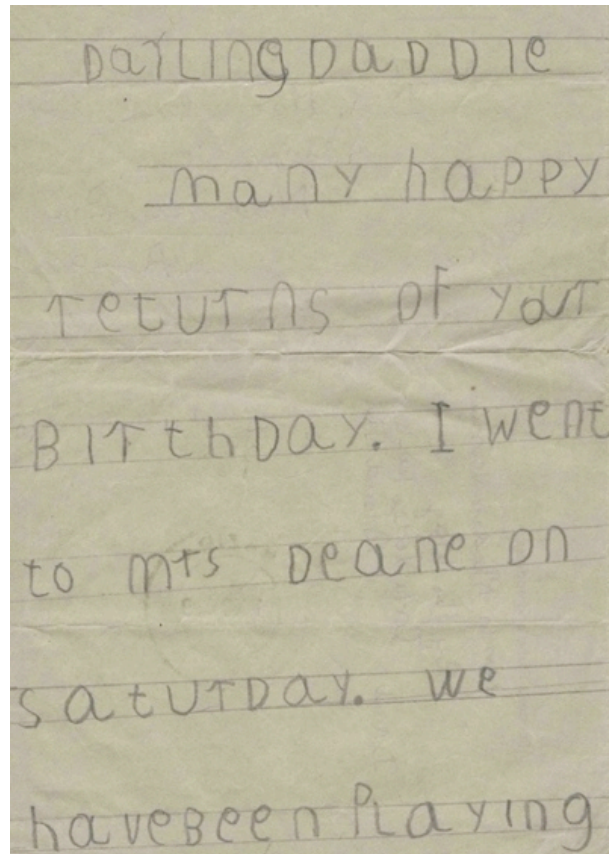 DarLing DaDDie
many happy
returns of your
BIrthDay. I went
to mrs Deane on
saturDay. We
haveBeen PLaying